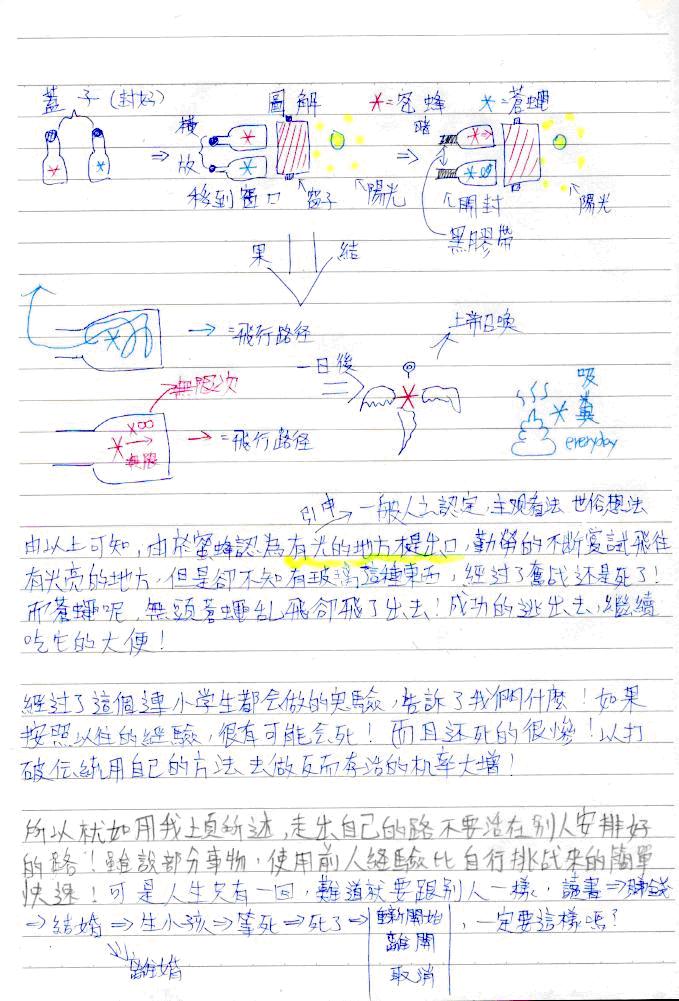 蓋子(封好) 圖解 *=蜜蜂 *=蒼蠅
橫放 ⇒ ⇒ 暗
移到窗口 窗子 陽光 開封 陽光
黑膠帶
結果
上帝召喚
→=飛行路径
一日後
無限次
吸糞 everyday
無限
→=飛行路径
引申 一般人之認定,主观看法 世俗想法
由以上可知,由於蜜蜂認為有光的地方才是出口,勤勞的不斷嘗試飛往
有光亮的地方,但是卻不知有玻璃這種東西,經过了奮战还是死了!
而蒼蠅呢,無頭蒼蠅乱飛卻飛了出去!成功的逃出去,繼續
吃它的大便!
經过了這個連小学生都会做的实驗,告訴了我們什麼!如果
按照以往的經驗,很有可能会死!而且还死的很慘!以打
破传統用自己的方法去做反而存活的机率大增!
所以就如用我上頁所述,走出自己的路不要活在別人安排好
的路!雖說部分事物,使用前人經驗比自行挑战來的簡單
快速!可是人生只有一回,難道就要跟別人一樣,讀書⇒賺錢
⇒結婚⇒生小孩⇒等死⇒死了⇒ 重新開始 ,一定要這樣嗎?
離開
離婚 取消